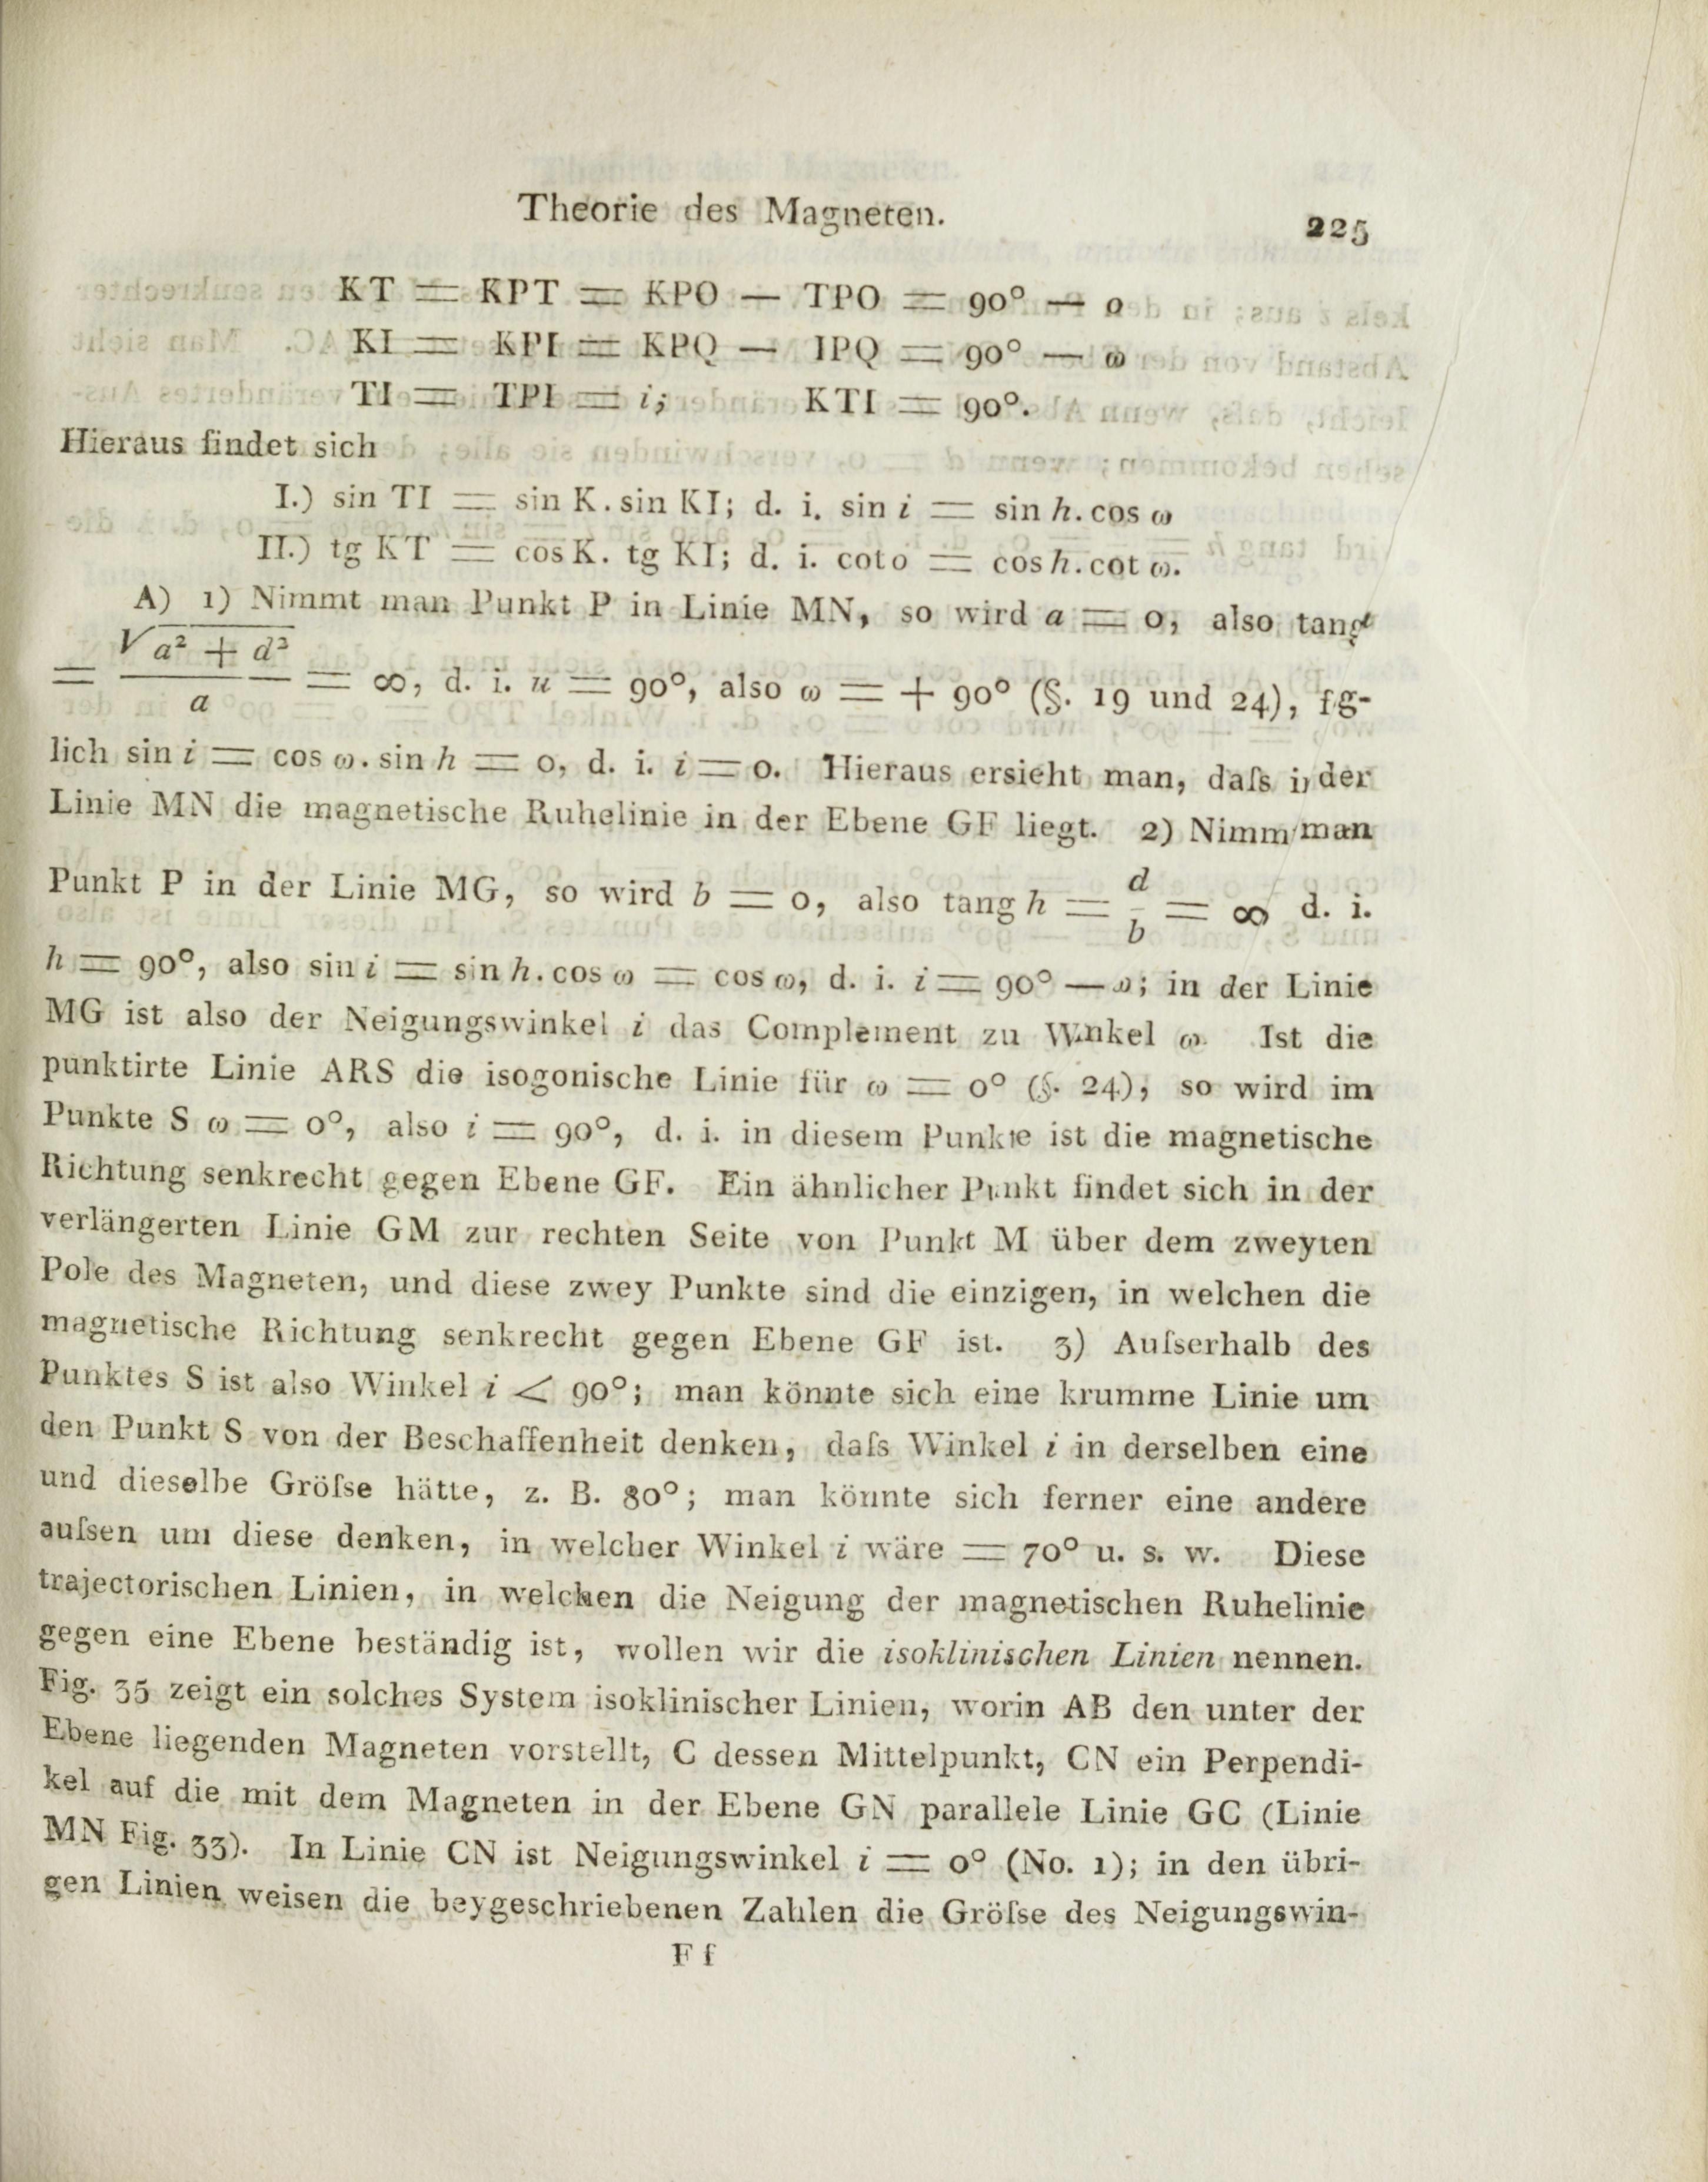 Theorie des Magneten. 225
KT = KPT = KPO — TPO = 90° — o
KI = KPI = KPQ — IPQ = 90° — ω
TI = TPI = i; KTI = 90°.
Hieraus findet sich
I.) sin TI = sin K. sin KI; d. i. sin i = sin h. cos ω
II.) tg KT = cos K. tg KI; d. i. cot o = cos h. cot ω.
A) 1) Nimmt man Punkt P in Linie MN, so wird a = 0, also tang
= √a² + d² / a = ∞, d. i. u = 90°, also ω = + 90° (§. 19 und 24), fg-
lich sin i = cos ω. sin h = 0, d. i. i = 0. Hieraus ersieht man, daſs in der
Linie MN die magnetische Ruhelinie in der Ebene GF liegt. 2) Nimm man
Punkt P in der Linie MG, so wird b = 0, also tang h = d / b = ∞ d. i.
h = 90°, also sin i = sin h. cos ω = cos ω, d. i. i = 90° — ω; in der Linie
MG ist also der Neigungswinkel i das Complement zu Winkel ω. Ist die
punktirte Linie ARS die isogonische Linie für ω = 0° (§. 24), so wird im
Punkte S ω = 0°, also i = 90°, d. i. in diesem Punkte ist die magnetische
Richtung senkrecht gegen Ebene GF. Ein ähnlicher Punkt findet sich in der
verlängerten Linie GM zur rechten Seite von Punkt M über dem zweyten
Pole des Magneten, und diese zwey Punkte sind die einzigen, in welchen die
magnetische Richtung senkrecht gegen Ebene GF ist. 3) Auſserhalb des
Punktes S ist also Winkel i < 90°; man könnte sich eine krumme Linie um
den Punkt S von der Beschaffenheit denken, daſs Winkel i in derselben eine
und dieselbe Gröſse hätte, z. B. 80°; man könnte sich ferner eine andere
auſsen um diese denken, in welcher Winkel i wäre = 70° u. s. w. Diese
trajectorischen Linien, in welchen die Neigung der magnetischen Ruhelinie
gegen eine Ebene beständig ist, wollen wir die isoklinischen Linien nennen.
Fig. 35 zeigt ein solches System isoklinischer Linien, worin AB den unter der
Ebene liegenden Magneten vorstellt, C dessen Mittelpunkt, CN ein Perpendi-
kel auf die mit dem Magneten in der Ebene GN parallele Linie GC (Linie
MN Fig. 33). In Linie CN ist Neigungswinkel i = 0° (No. 1); in den übri-
gen Linien weisen die beygeschriebenen Zahlen die Gröſse des Neigungswin-
F f